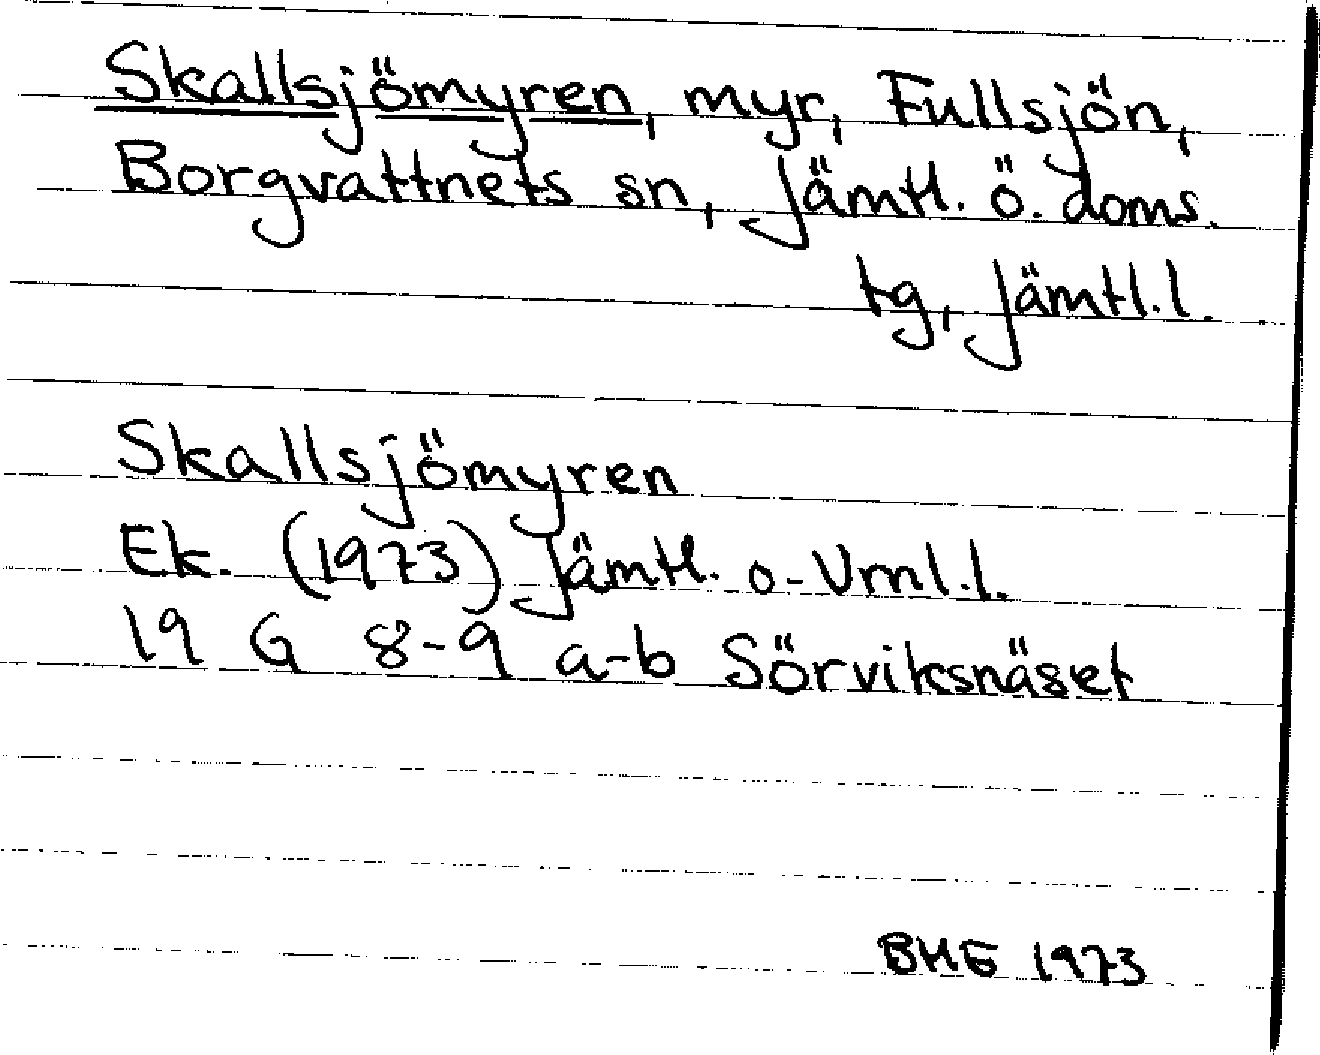 Skallsjömyren, myr, Fullsjön,
Borgvattnets sn, Jämtl. ö. doms.
tg, Jämtl.l.
Skallsjömyren
Ek. (1973) Jämtl. o-Vrnl.l.
19 G 8-9 a-b Sörviksnäset
BHG 1973